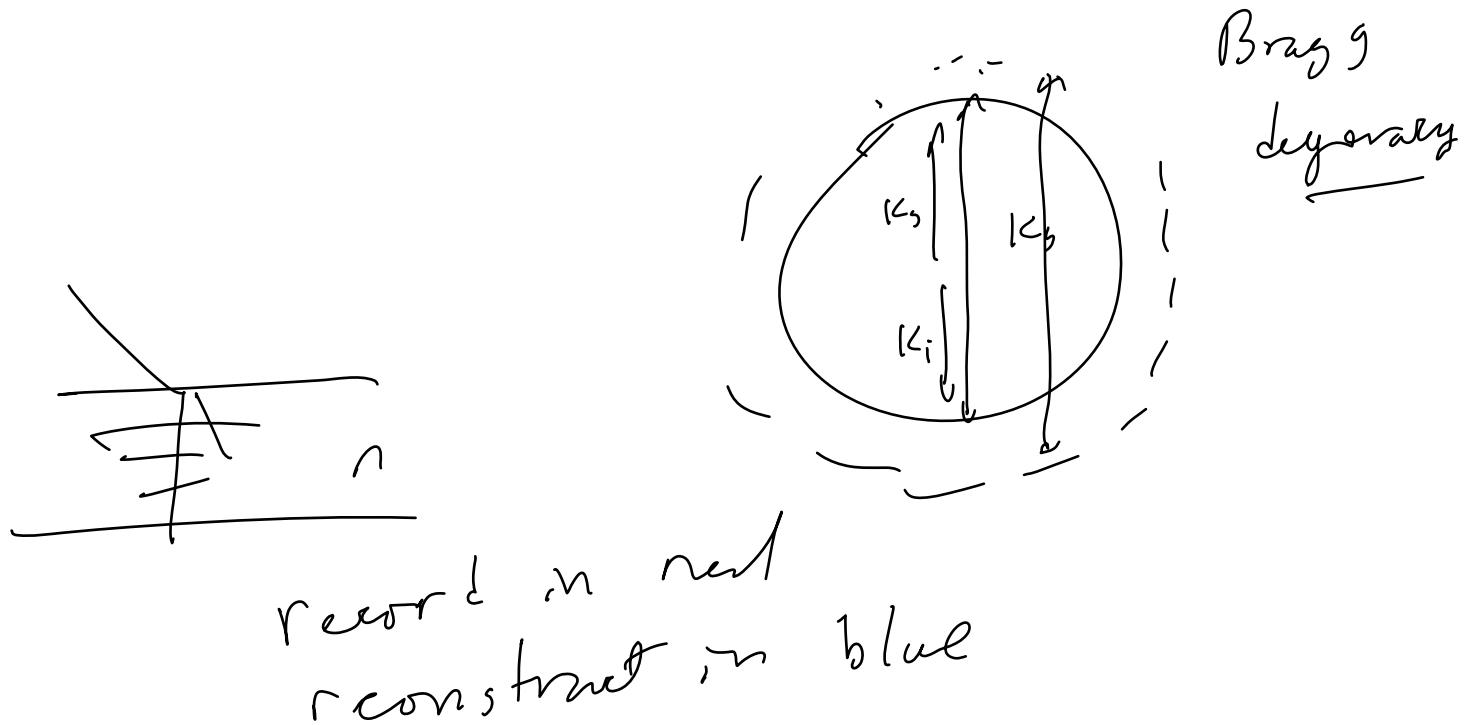 Bragg
degeneracy
Ks
Kb
Ki
n
record in red
reconstruct in blue